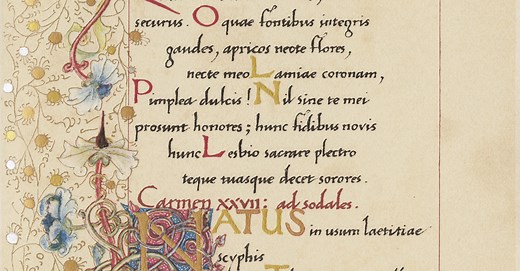 securus. O quae fontibus integris
gaudes, apricos necte flores,
necte meo Lamiae coronam,
Pimplea dulcis! Nil sine te mei
prosunt honores; hunc fidibus novis
hunc Lesbio sacrare plectro
teque tuasque decet sorores.
Carmen XXVII: ad sodales.
NATUS in usum laetitiae
scyphis